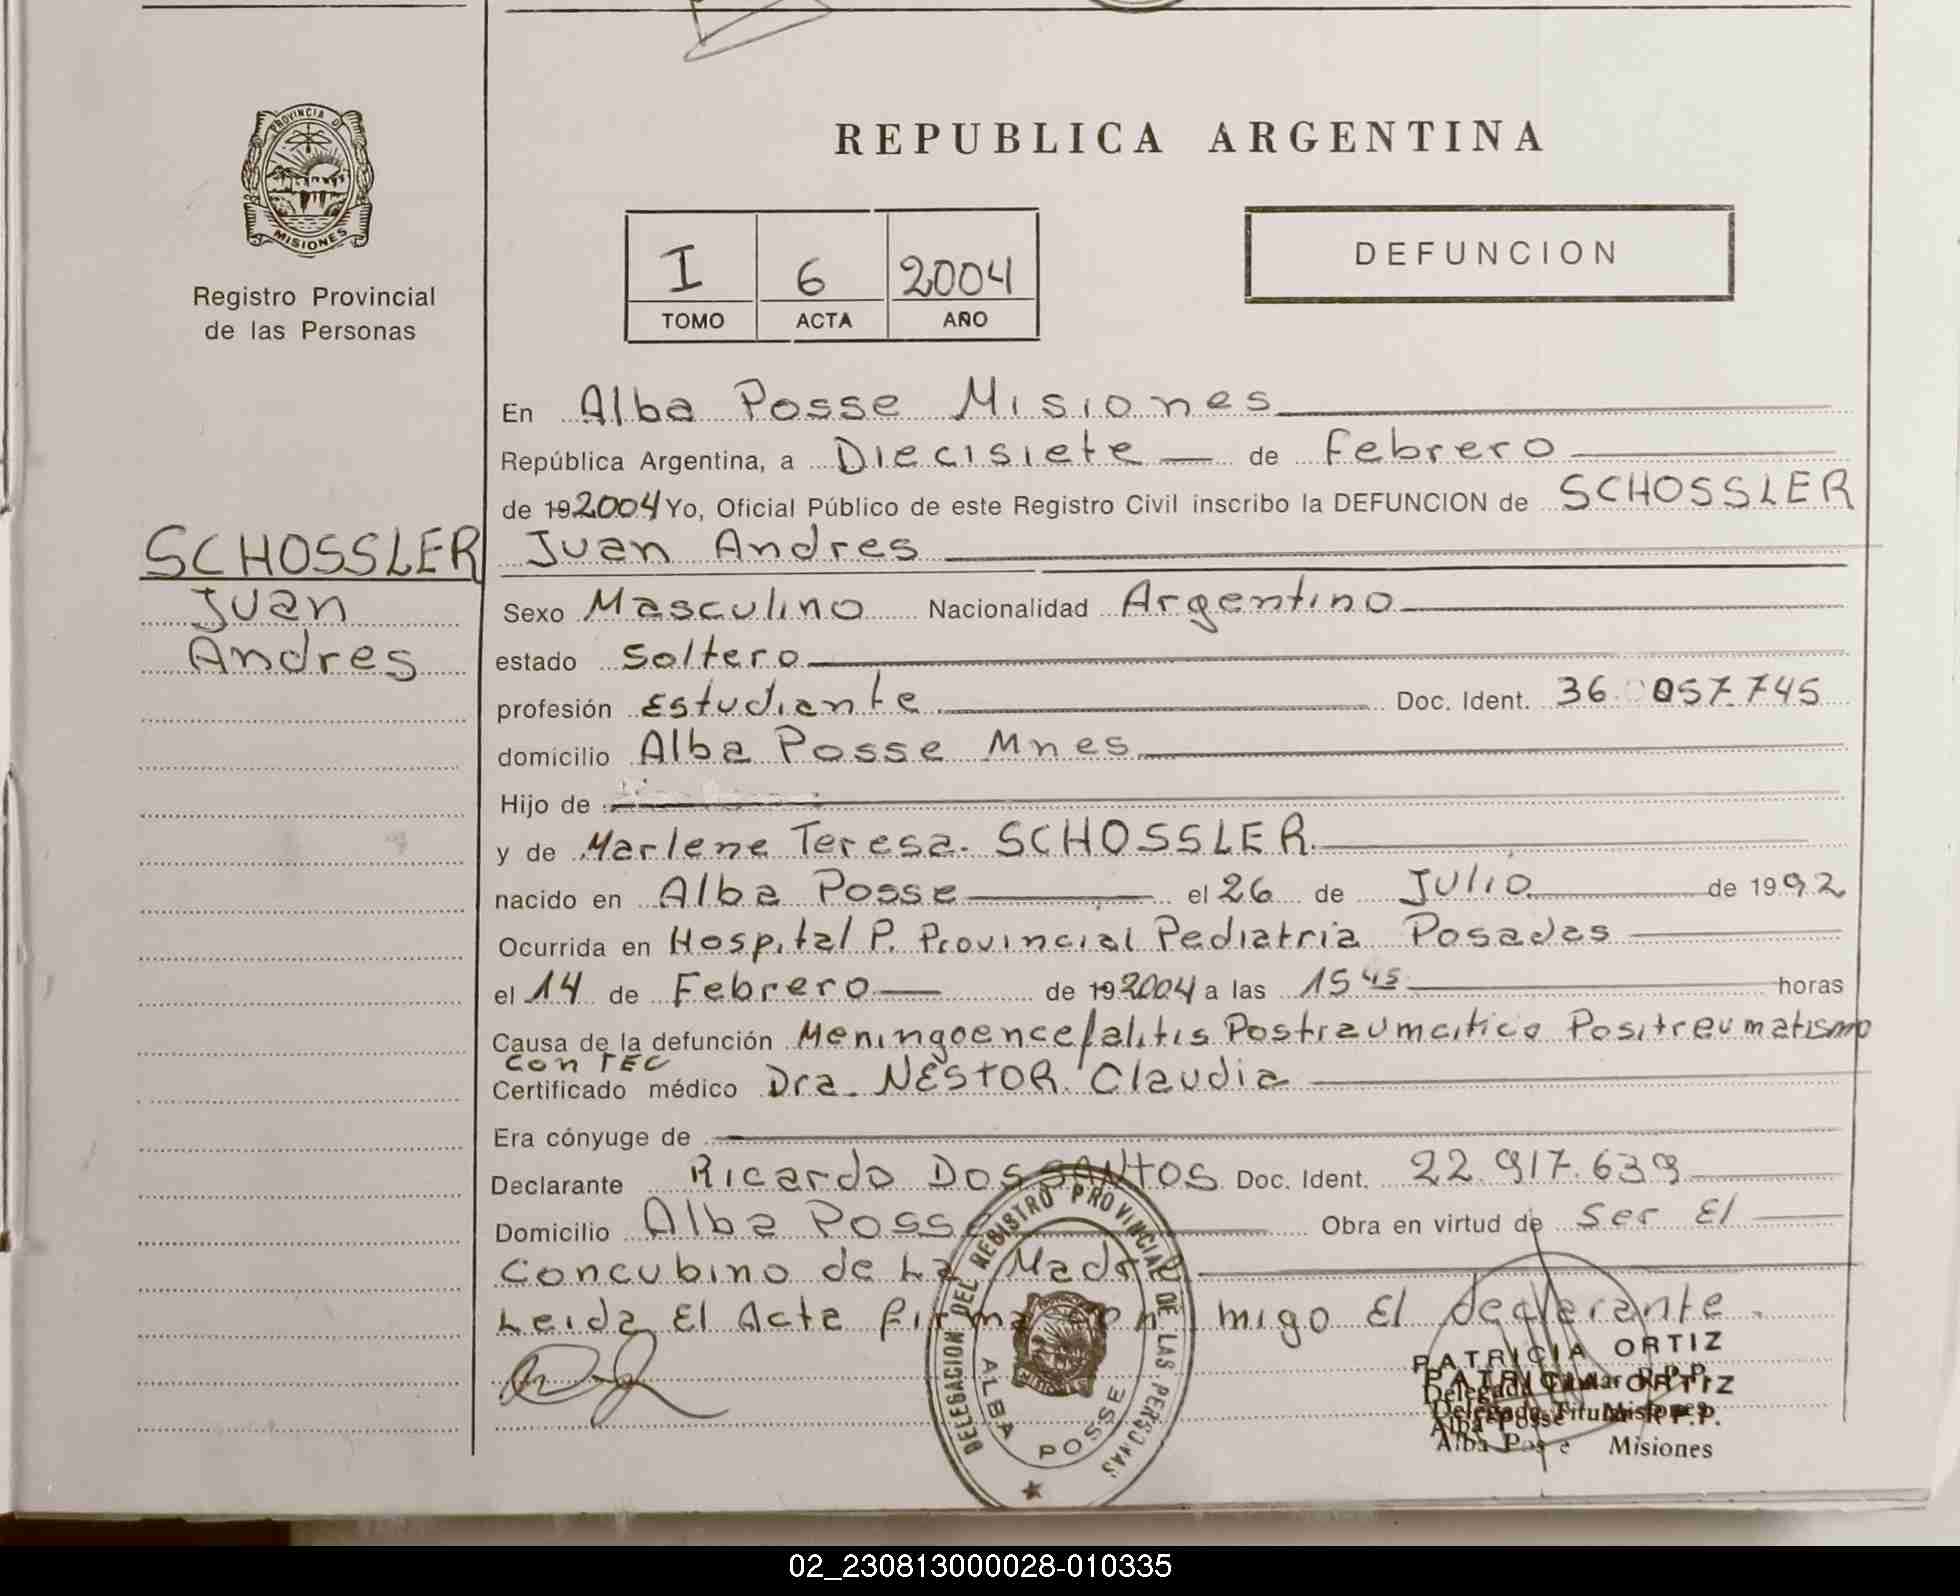 PROVINCIA D
MISIONES
Registro Provincial
de las Personas
SCHOSSLER
Juan
Andres
REPUBLICA ARGENTINA
I 6 2004
TOMO ACTA AÑO
DEFUNCION
En Alba Posse Misiones
República Argentina, a Diecisiete de Febrero
de 192004 Yo, Oficial Público de este Registro Civil inscribo la DEFUNCION de SCHOSSLER
Juan Andres
Sexo Masculino Nacionalidad Argentino
estado Soltero
profesión Estudiante Doc. Ident. 36.057.745
domicilio Alba Posse Mnes
Hijo de
y de Marlene Teresa. SCHOSSLER
nacido en Alba Posse el 26 de Julio de 1992
Ocurrida en Hospital P. Provincial Pediatria Posadas
el 14 de Febrero de 192004 a las 15 45 horas
Causa de la defunción Meningoencefalitis Postraumatico Positreumatismo
con TEC
Certificado médico Dra. NESTOR Claudia
Era cónyuge de
Declarante Ricardo DOSSANTOS Doc. Ident. 22.917.639
Domicilio Alba Posse Obra en virtud de Ser El
Concubino de La Madre
Leida El Acta firma con migo El declarante.
DELEGACION DEL REGISTRO PROVINCIAL DE LAS PERSONAS
ALBA POSSE
PATRICIA ORTIZ
PATRICIA ORTIZ
Delegada Titular R.P.P.
Delegada Titular R.P.P.
Alba Posse Misiones
Alba Pos e Misiones
02_230813000028-010335